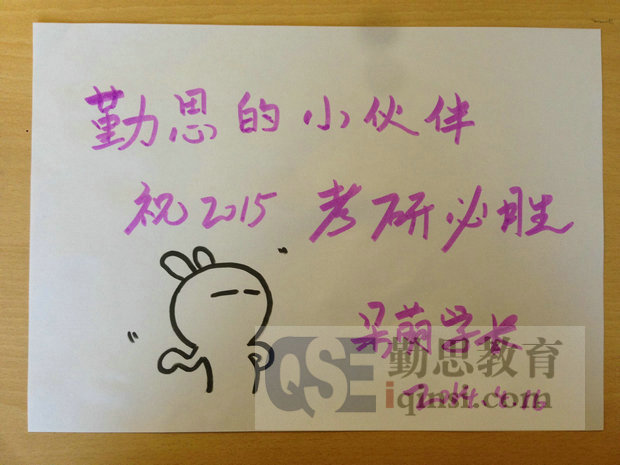 勤思的小伙伴
祝2015 考研必胜
呆萌学长
2014.4.16
QSE 勤思教育
iqinsi.com